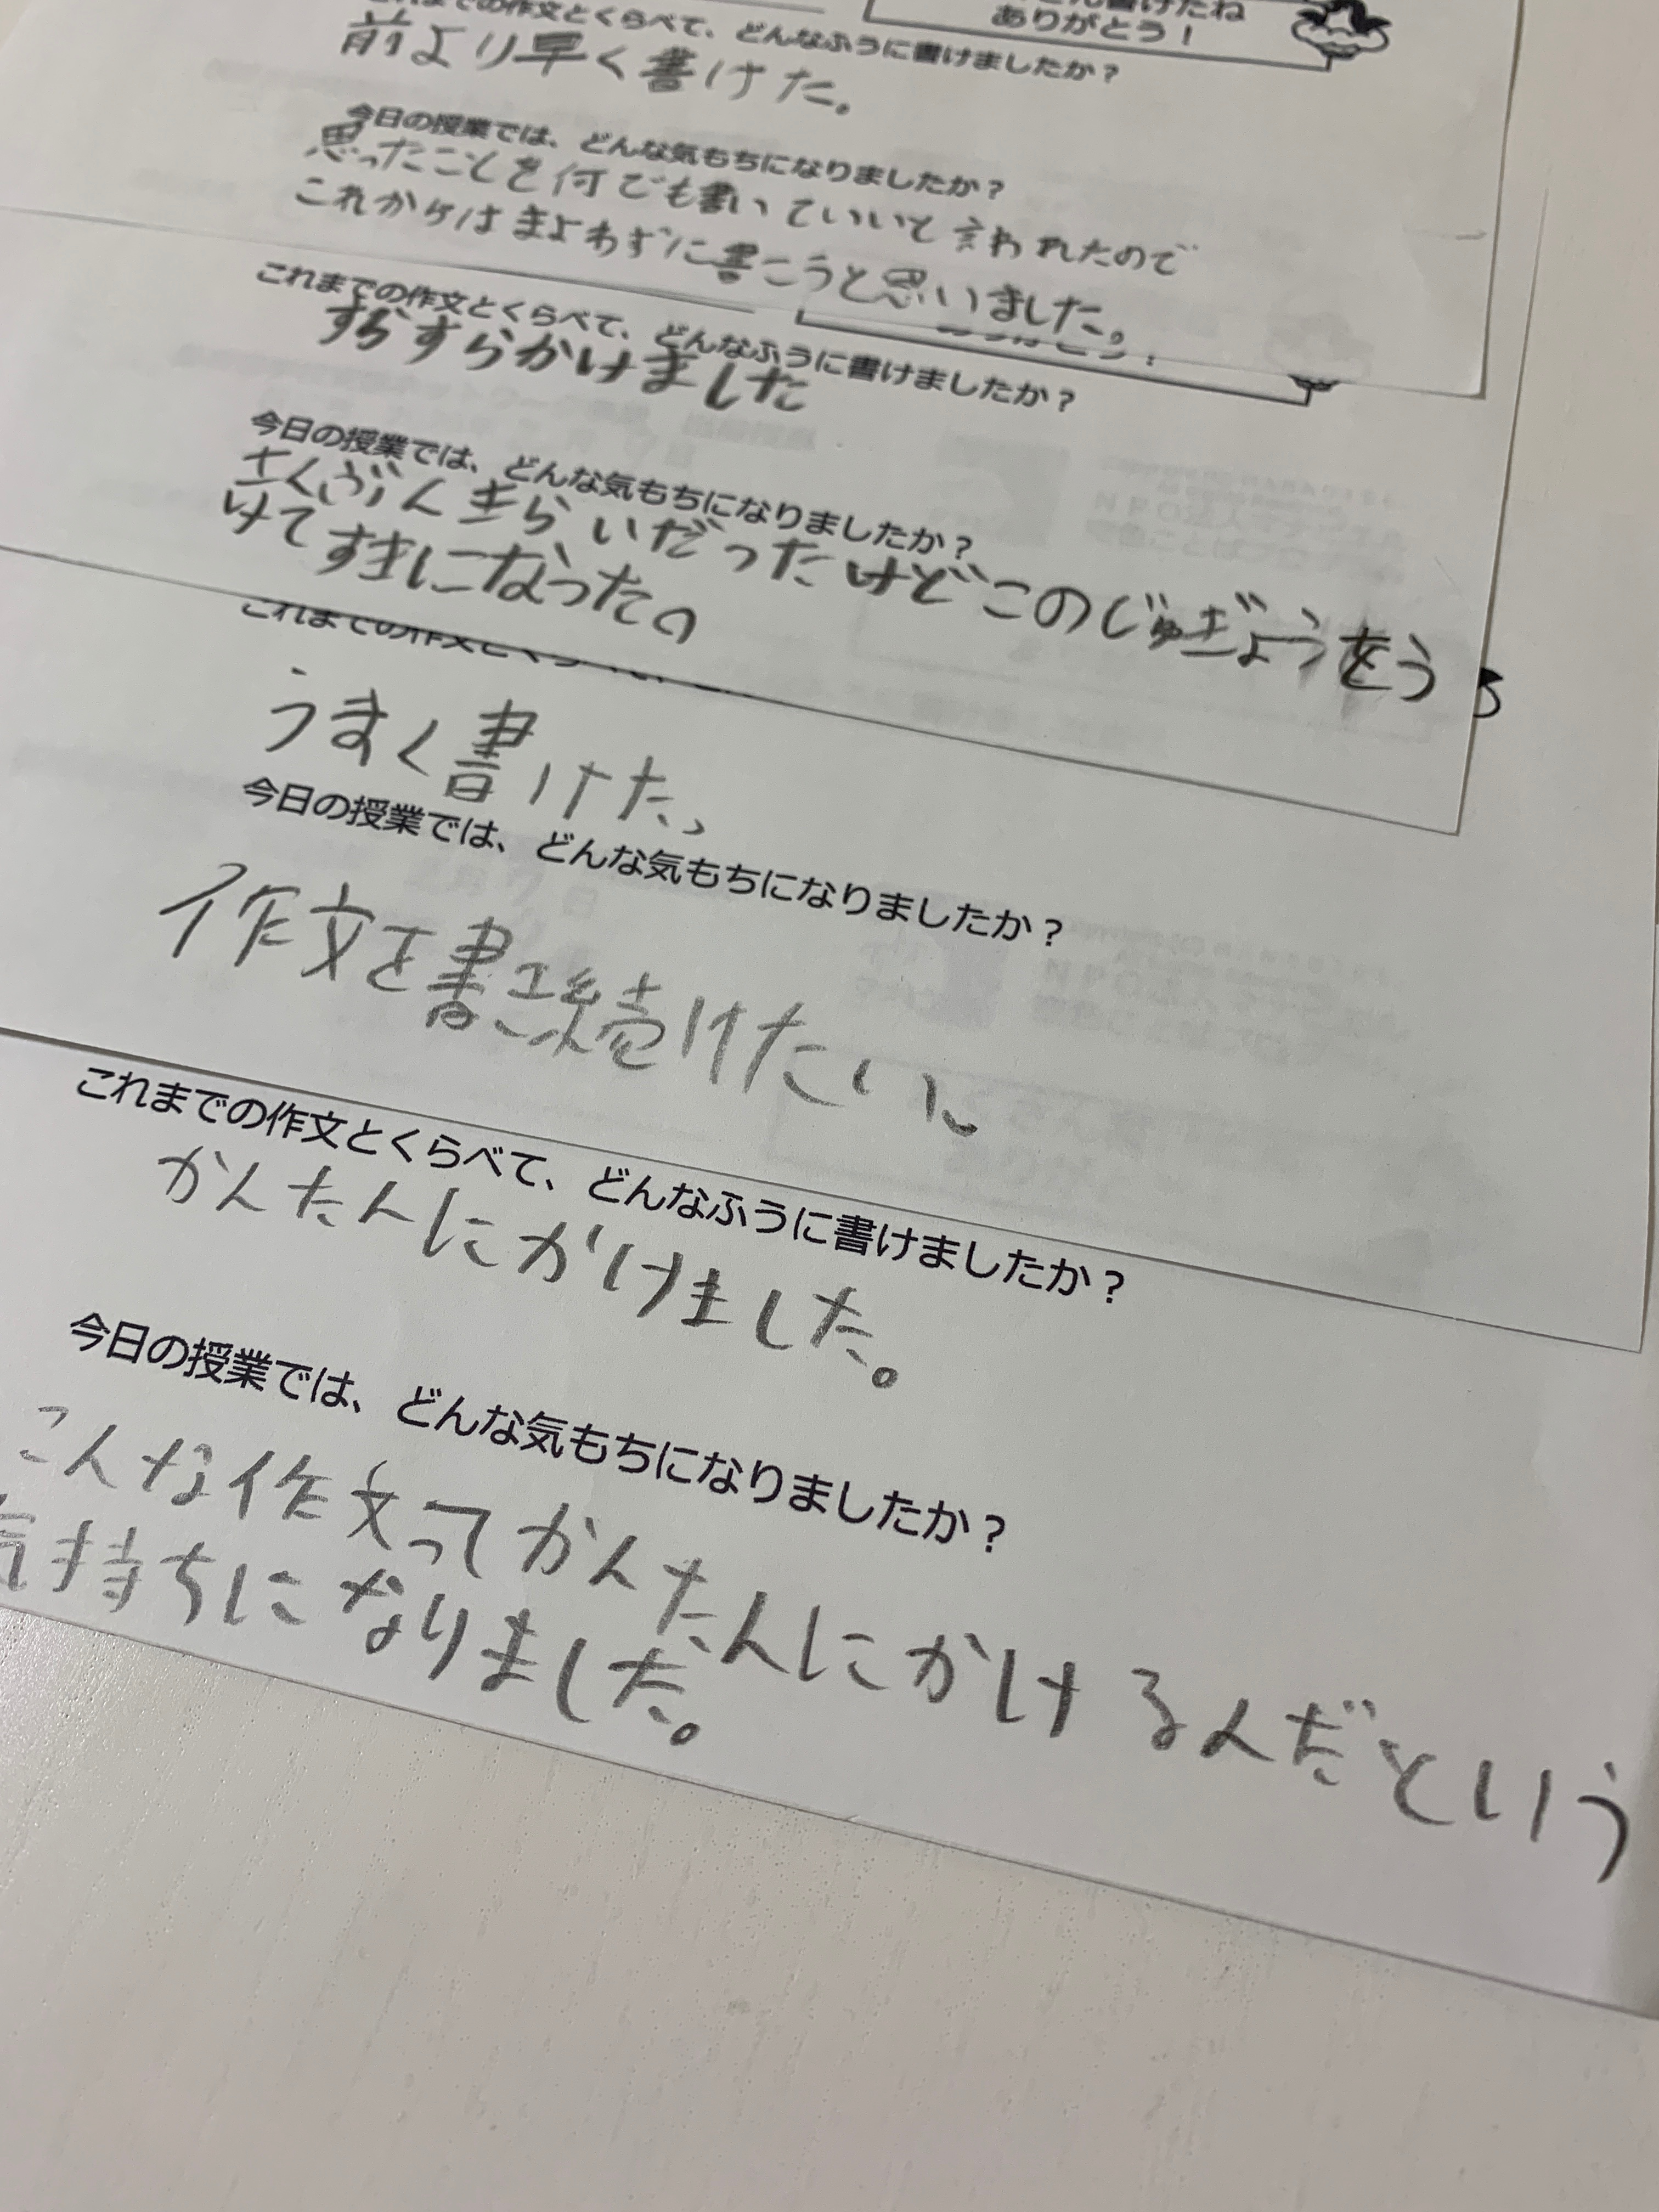 書けたね
ありがとう！
これまでの作文とくらべて、どんなふうに書けましたか？
前より早く書けた。
今日の授業では、どんな気もちになりましたか？
思ったことを何でも書いていいと言われたので
これからはまよわずに書こうと思いました。
これまでの作文とくらべて、どんなふうに書けましたか？
すらすらかけました
今日の授業では、どんな気もちになりましたか？
さくぶんきらいだったけどこのじゅぎょうをう
けてすきになった。
これまでの作文とくら
うまく書けた、
今日の授業では、どんな気もちになりましたか？
作文を書き続けたい、
これまでの作文とくらべて、どんなふうに書けましたか？
かんたんにかけました。
今日の授業では、どんな気もちになりましたか？
こんな作文ってかんたんにかけるんだという
気持ちになりました。